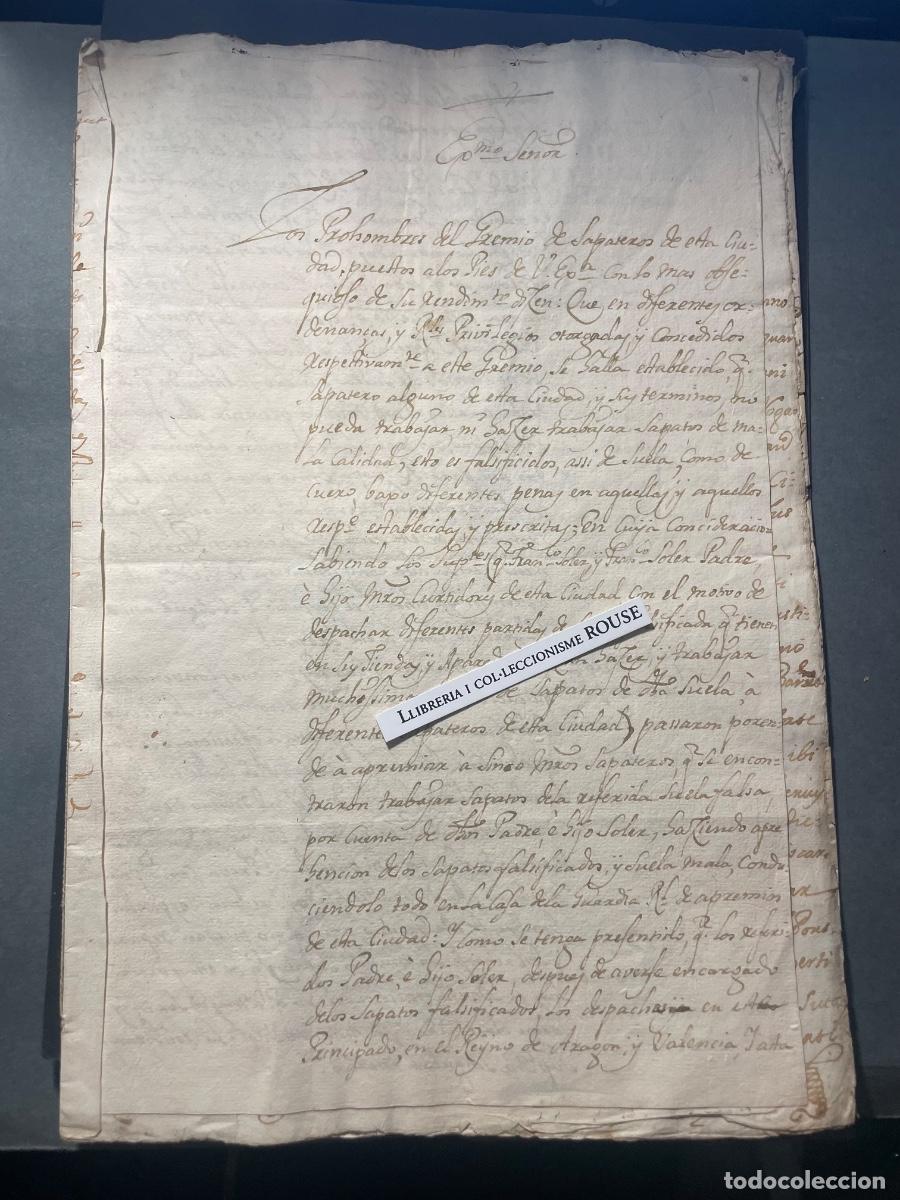 Exmo Señor
Los Prohombres del Gremio de Sapateros de esta Ciu-
dad, puestos a los Pies de V. Exa con lo mas obse-
quioso de su rendimto dizen: Que en diferentes or-
denanças, y Rls Privilegios otorgadas y Concedidos
respectivamte a este Gremio, se halla establecido, q.
Sapatero alguno de esta Ciudad, y sus terminos, no
pueda trabajar, ni hazer trabajar Sapatos de ma-
la Calidad, esto es falsificidos, assi de Suela, como de
cuero, baxo diferentes penas en aquellas y aquellos
respe. establecidas, y prescritas; En cuya Concideracion
Sabiendo los Suptes q. Franco Soler, y Franco Soler Padre,
è hijo Mros Curtidores de esta Ciudad con el motivo de
despachar diferentes partidas de falsificada q. tienen
en sus Tiendas, y hazer, y trabajar
muchissima de Sapatos de dha Suela, à
diferentes Sapateros de esta Ciudad) passaron poren-
de à apremiar à Sinco Mros Sapateros, q. se encon-
traron trabajar Sapatos de la referida Suela falsa,
por cuenta de dhos Padre, è hijo Soler, haziendo apre
hencion de los Sapatos falsificados, y Suela mala, Condu
ciendolo todo en la Casa de la Guardia Rl. de apremios
de esta Ciudad: Y como se tenga presentido, q. los referi-
dos Padre, è hijo Soler, despues de averse encargado
de los Sapatos falsificados, los despachasen en este
Principado, en el Reyno de Aragon, y Valencia, hasta
LLIBRERIA I COL·LECCIONISME ROUSE
todocoleccion